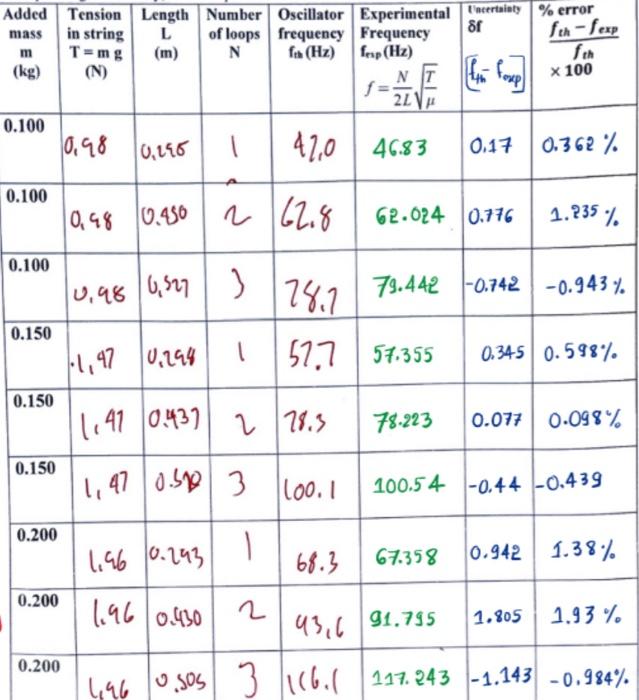 Added mass m (kg) | Tension in string T = m g (N) | Length L (m) | Number of loops N | Oscillator frequency fth (Hz) | Experimental Frequency fexp (Hz) f = N/2L √T/μ | Uncertainty δf [fth - fexp] | % error fth − fexp / fth × 100
0.100 | 0,98 | 0,295 | 1 | 47,0 | 46.83 | 0.17 | 0.362 %
0.100 | 0,98 | 0.450 | 2 | 62.8 | 62.024 | 0.776 | 1.235 %
0.100 | 0,98 | 0,527 | 3 | 78.7 | 79.442 | -0.742 | -0.943 %
0.150 | 1,47 | 0,294 | 1 | 57.7 | 57.355 | 0.345 | 0.598%
0.150 | 1,47 | 0.437 | 2 | 78.3 | 78.223 | 0.077 | 0.098%
0.150 | 1,47 | 3 | 100.1 | 100.54 | -0.44 | -0.439
0.200 | 1,96 | 0.293 | 1 | 68.3 | 67.358 | 0.942 | 1.38%
0.200 | 1.96 | 0.430 | 2 | 93,6 | 91.795 | 1.805 | 1.93 %
0.200 | 1,96 | 0.505 | 3 | 116.1 | 117.243 | -1.143 | -0.984%